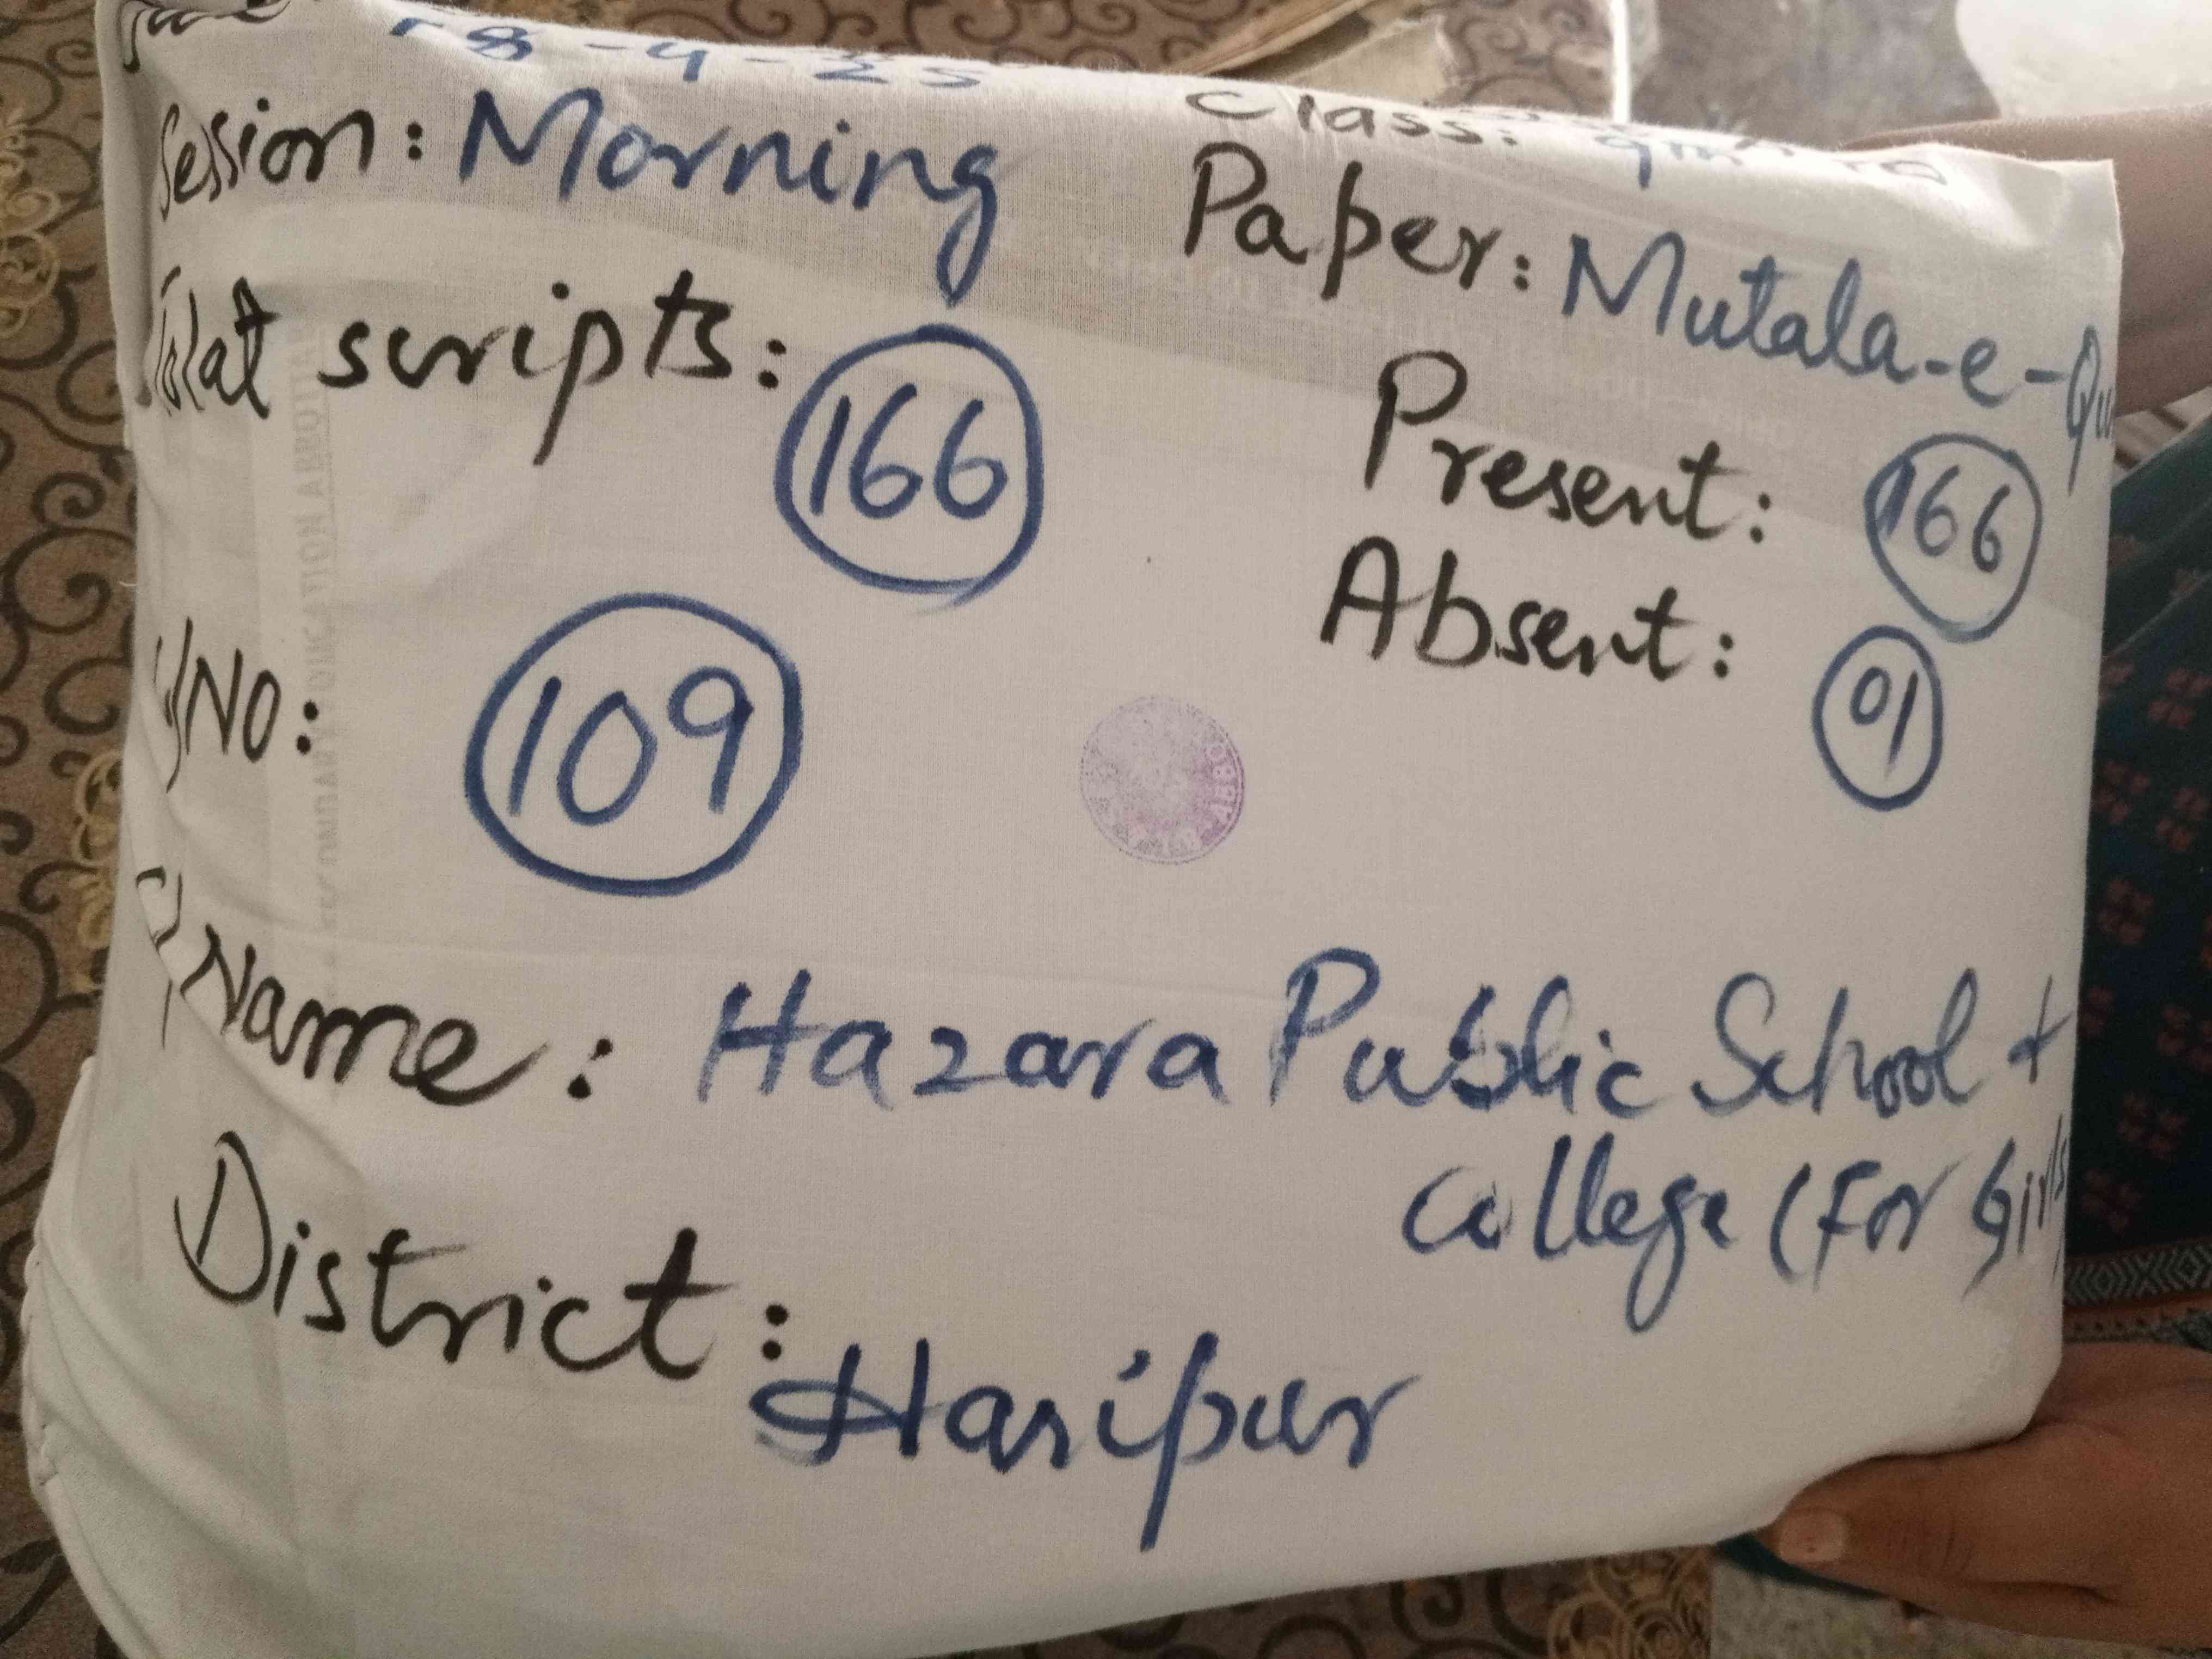 18-4-25
Class: 9th
Session: Morning
Paper: Mutala-e-Qu
Total scripts: 166
Present: 166
Absent: 01
NO: 109
Name: Hazara Public School +
College (For Girls
District: Haripur